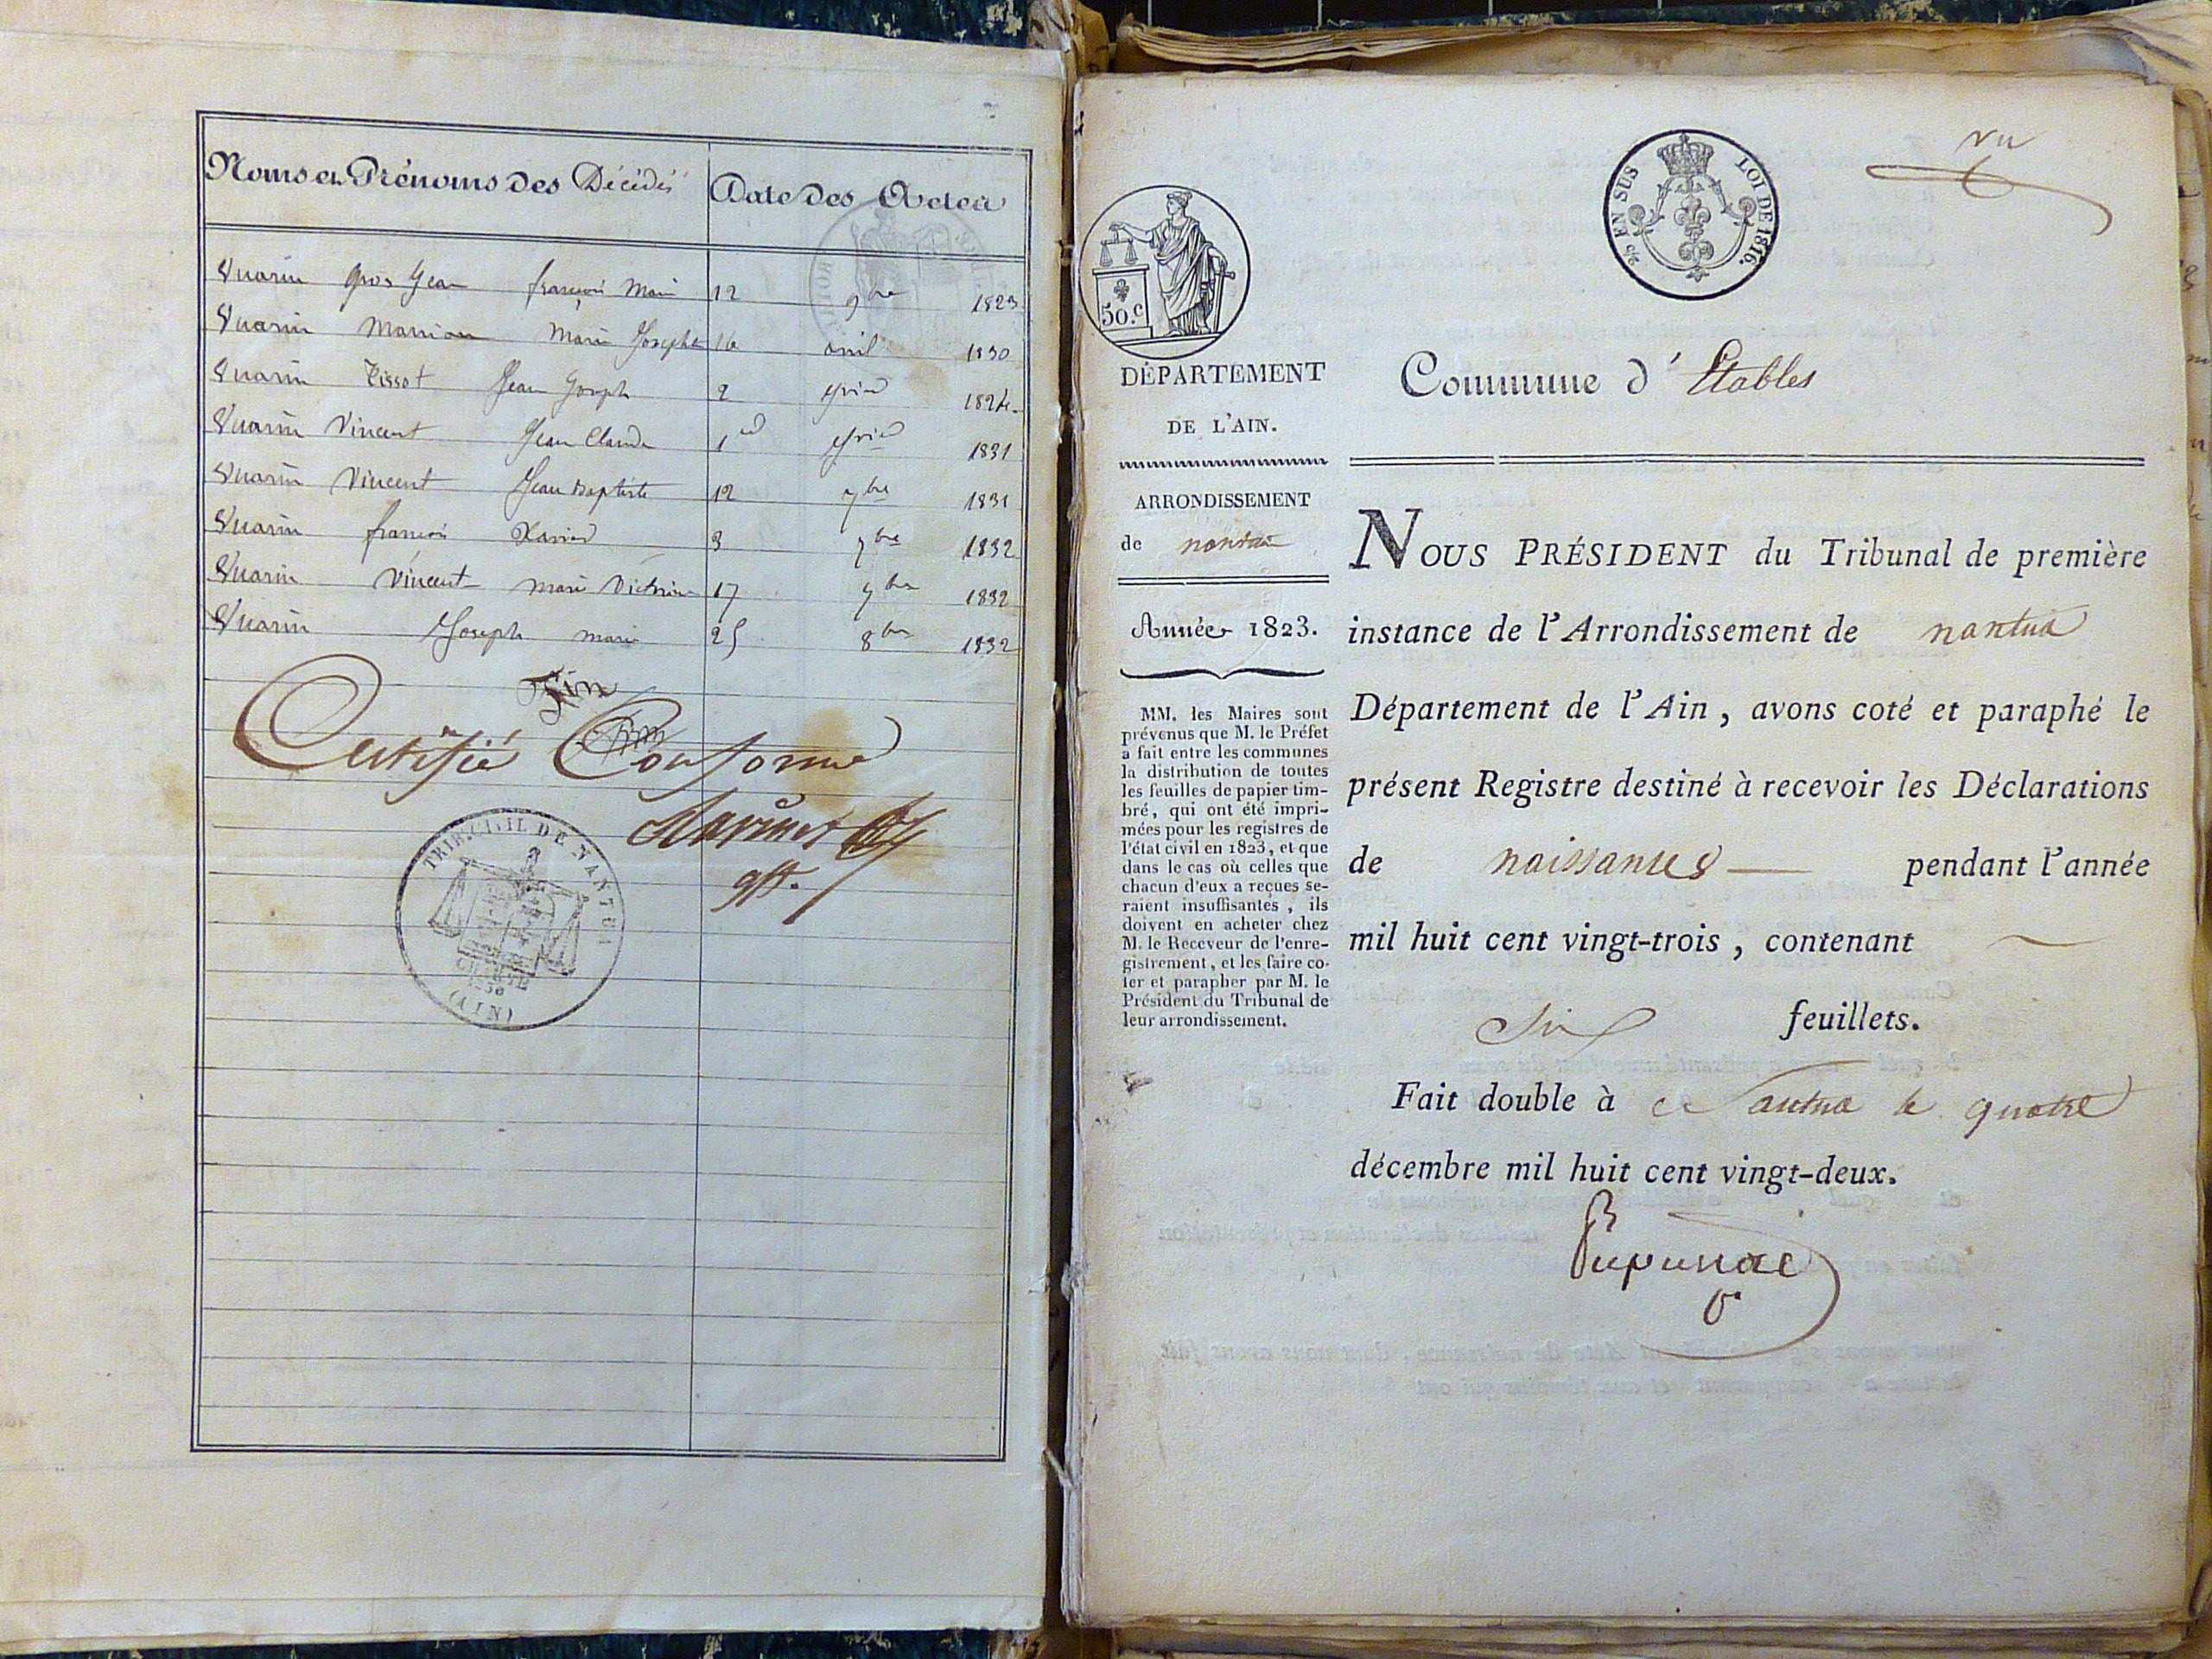 Noms et Prénoms des Décédés
Date des Actes
Vuarin Gros Jean françois Marie 12 9bre 1823
Vuarin Marie Josephe 16 avril 1830
Vuarin Tissot Jean Joseph 2 1824
Vuarin Vincent Jean Claude 1er 1831
Vuarin Vincent Jean Baptiste 12 7bre 1831
Vuarin françois Xavier 3 7bre 1832
Vuarin Vincent marie 17 1832
Vuarin Joseph marie 25 8bre 1832
Fin
Certifié Conforme
TRIB. CIVIL DE NANTUA
(AIN)
vu
EN SUS LOI DE 1816.
50.c
DÉPARTEMENT
DE L'AIN.
ARRONDISSEMENT
de nantua
Année 1823.
MM. les Maires sont
prévenus que M. le Préfet
a fait entre les communes
la distribution de toutes
les feuilles de papier tim-
bré, qui ont été impri-
mées pour les registres de
l'état civil en 1823, et que
dans le cas où celles que
chacun d'eux a reçues se-
raient insuffisantes, ils
doivent en acheter chez
M. le Receveur de l'enre-
gistrement, et les faire co-
ter et parapher par M. le
Président du Tribunal de
leur arrondissement.
Commune d'Etables
NOUS PRÉSIDENT du Tribunal de première
instance de l'Arrondissement de nantua
Département de l'Ain, avons coté et paraphé le
présent Registre destiné à recevoir les Déclarations
de naissances pendant l'année
mil huit cent vingt-trois, contenant
six feuillets.
Fait double à Nantua le quatre
décembre mil huit cent vingt-deux.